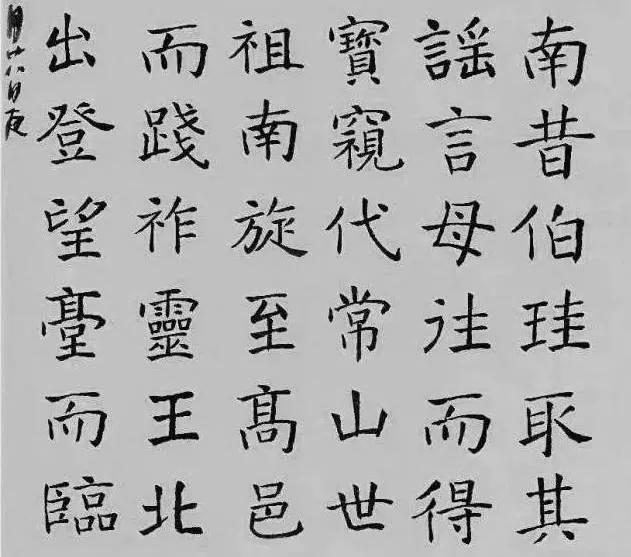 南昔伯珪取其
謡言母往而得
寶窺代常山世
祖南旋至髙邑
而踐祚靈王北
出登望臺而臨
月廿八日夜